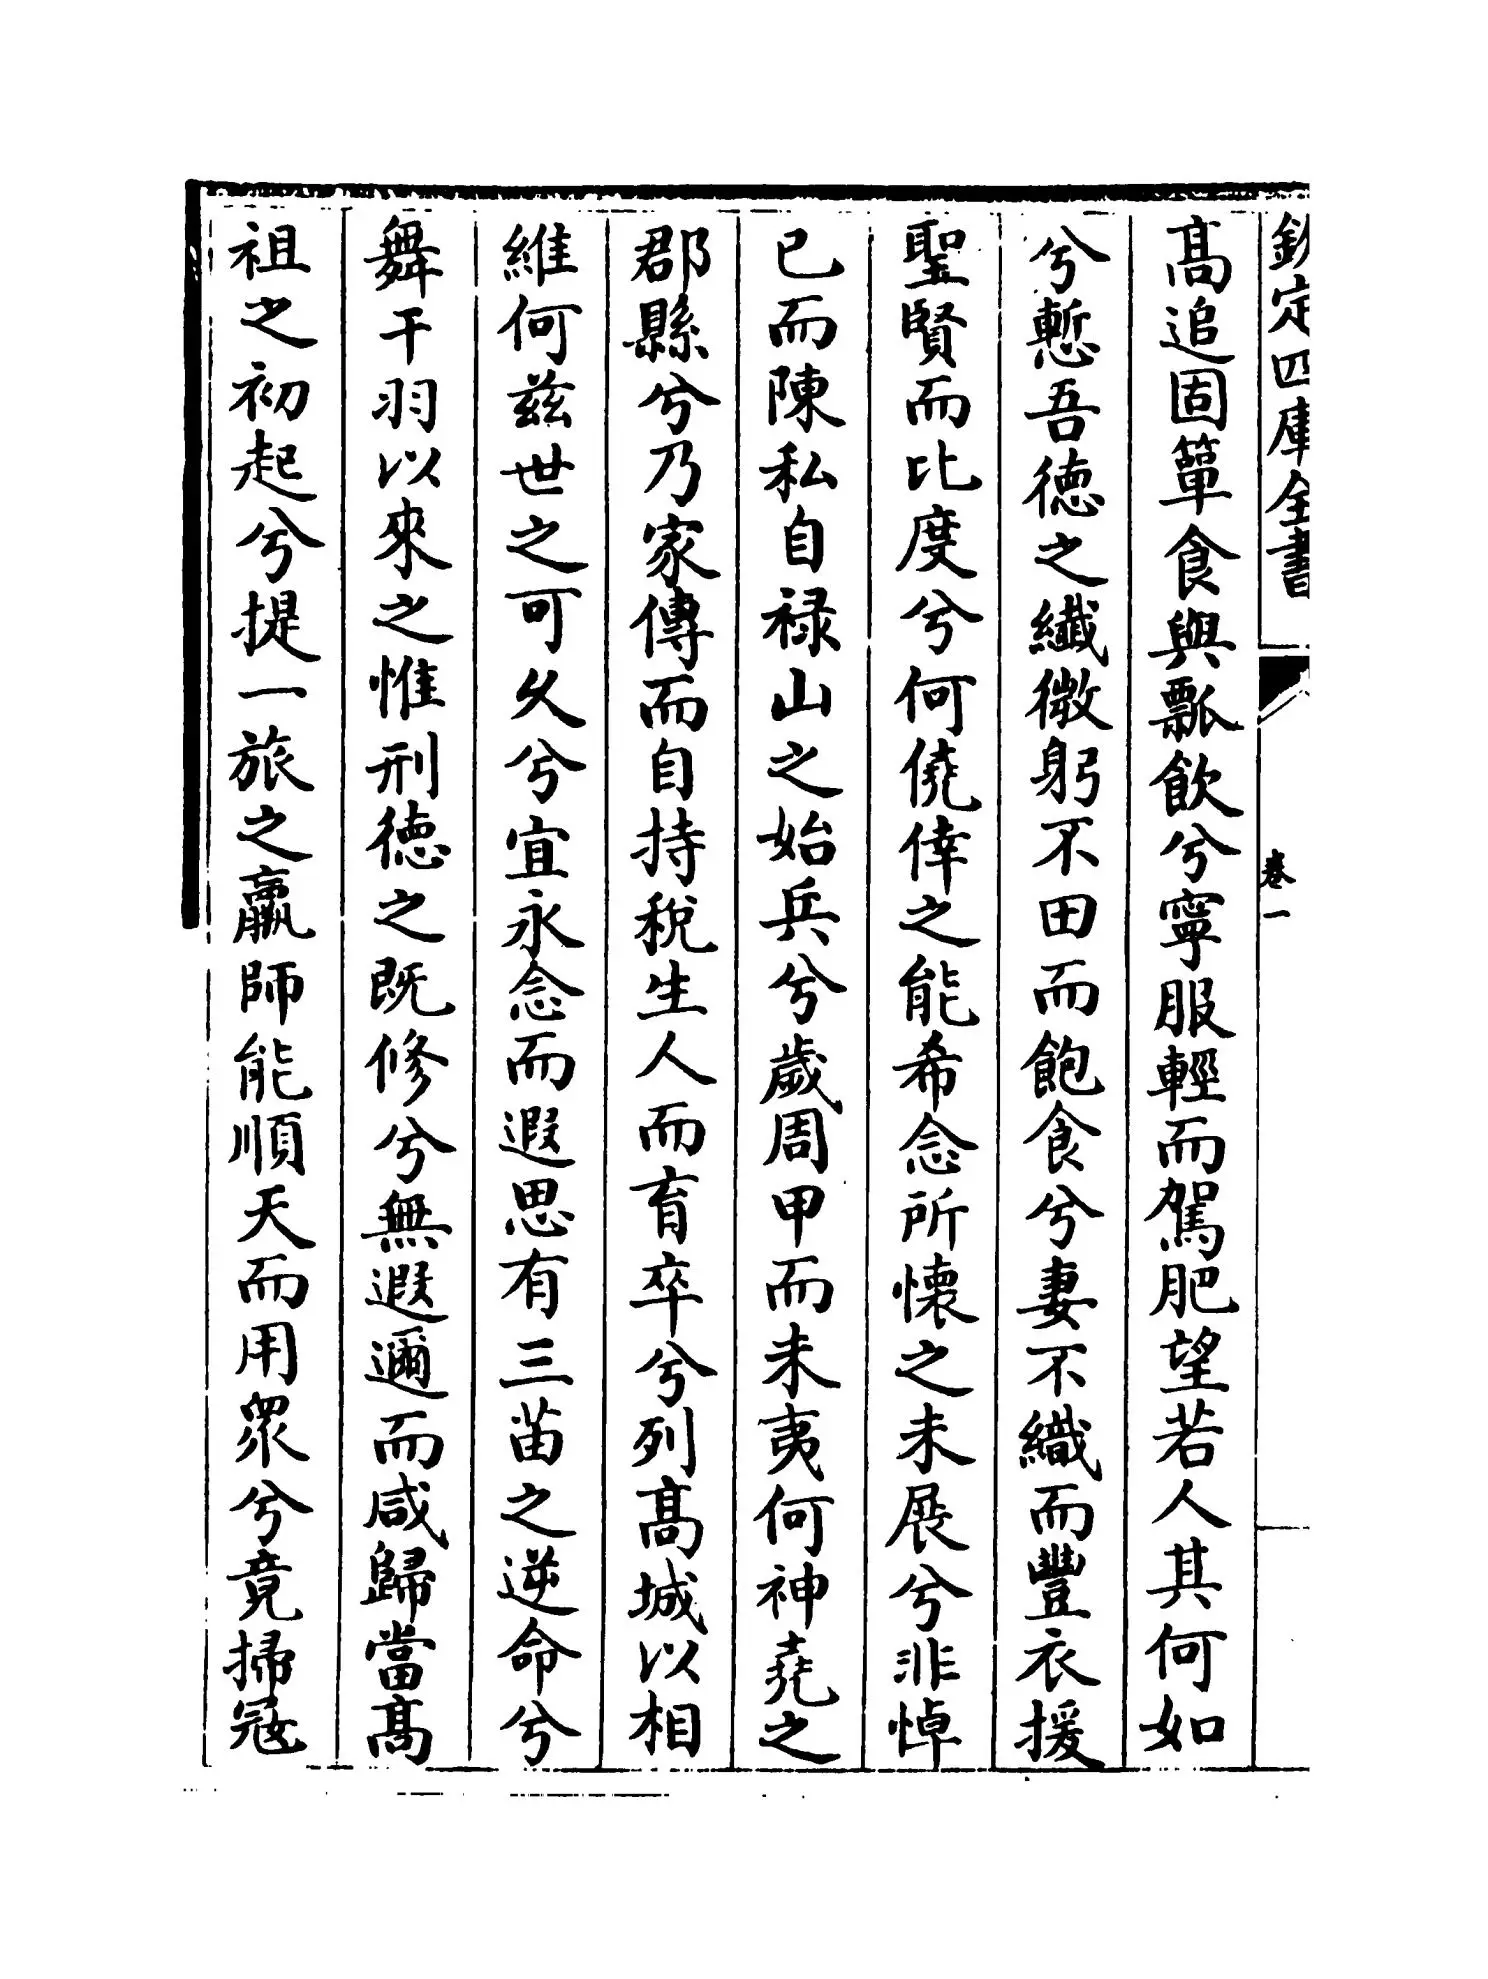 欽定四庫全書
卷一
髙追固簞食與瓢飲兮寧服輕而駕肥望若人其何如
兮慙吾徳之纎微躬不田而飽食兮妻不織而豐衣援
聖賢而比度兮何僥倖之能希念所懐之未展兮非悼
已而陳私自禄山之始兵兮歲周甲而未夷何神堯之
郡縣兮乃家傳而自持税生人而育卒兮列髙城以相
維何兹世之可久兮宜永念而遐思有三苗之逆命兮
舞干羽以來之惟刑徳之既修兮無遐邇而咸歸當髙
祖之初起兮提一旅之羸師能順天而用衆兮竟掃冦